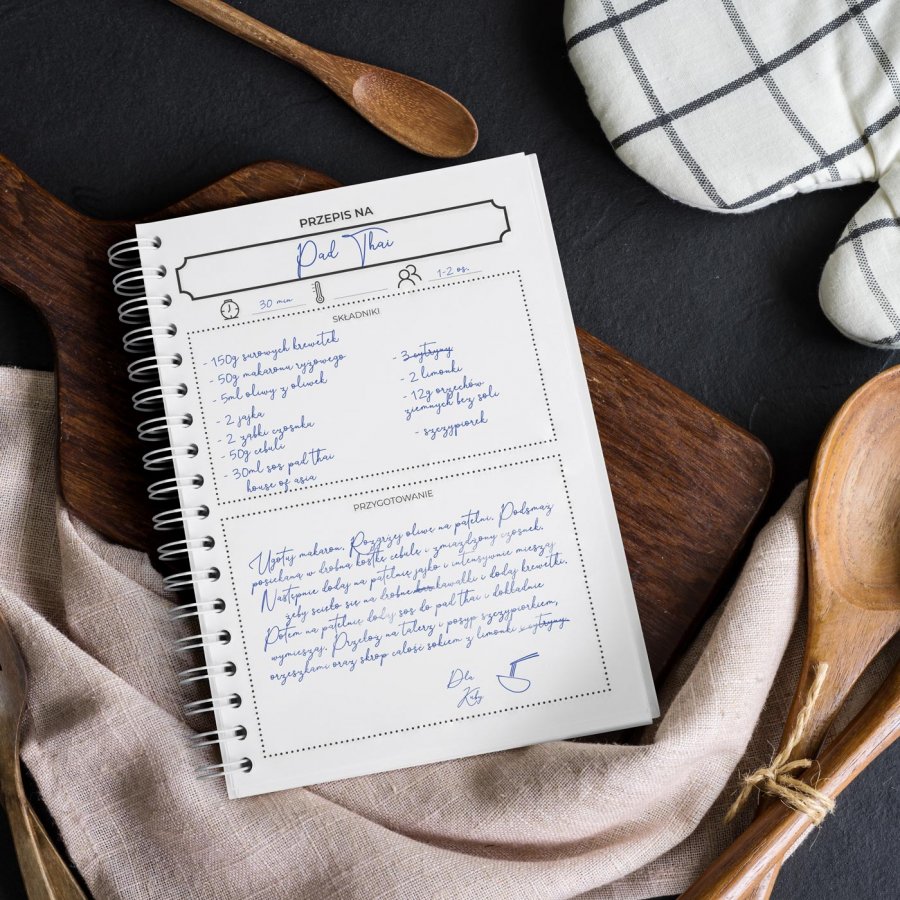 PRZEPIS NA
Pad Thai
30 min
1-2 os.
SKŁADNIKI
- 150g surowych krewetek
- 50g makaronu ryżowego
- 5ml oliwy z oliwek
- 2 jajka
- 2 ząbki czosnku
- 50g cebuli
- 30ml sos pad thai
house of asia
- 3 cytryny
- 2 limonki
- 12g orzechów
ziemnych bez soli
- szczypiorek
PRZYGOTOWANIE
Ugotuj makaron. Rozgrzej oliwę na patelni. Podsmaż
posiekaną w drobną kostkę cebulę i zmiażdżony czosnek.
Następnie dodaj na patelnię jajko i intensywnie mieszaj
żeby ścięło się na drobne kawałki i dodaj krewetki.
Potem na patelnię dodaj sos do pad thai i dokładnie
wymieszaj. Przełóż na talerz i posyp szczypiorkiem,
orzeszkami oraz skrop całość sokiem z limonki z cytryny.
Dla
Kuby